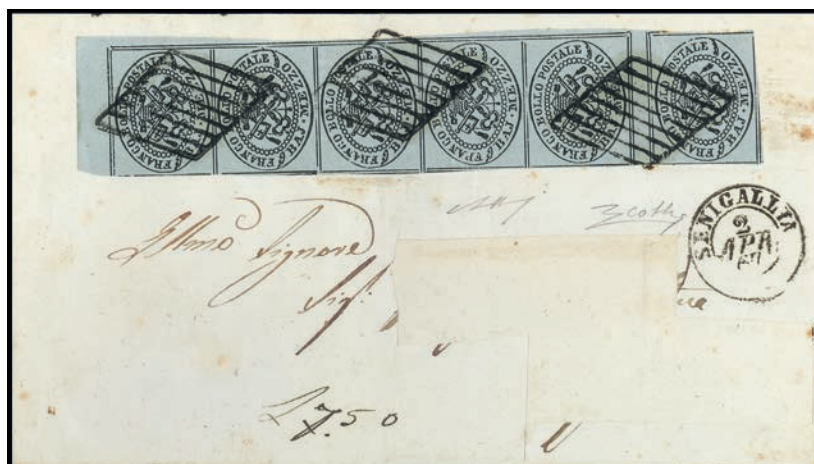 FRANCO BOLLO POSTALE BAJ. MEZZO
FRANCO BOLLO POSTALE BAJ. MEZZO
FRANCO BOLLO POSTALE BAJ. MEZZO
FRANCO BOLLO POSTALE BAJ. MEZZO
FRANCO BOLLO POSTALE BAJ. MEZZO
FRANCO BOLLO POSTALE BAJ. MEZZO
SENIGALLIA
2
APR
Illmo Signore
Sigr:
750